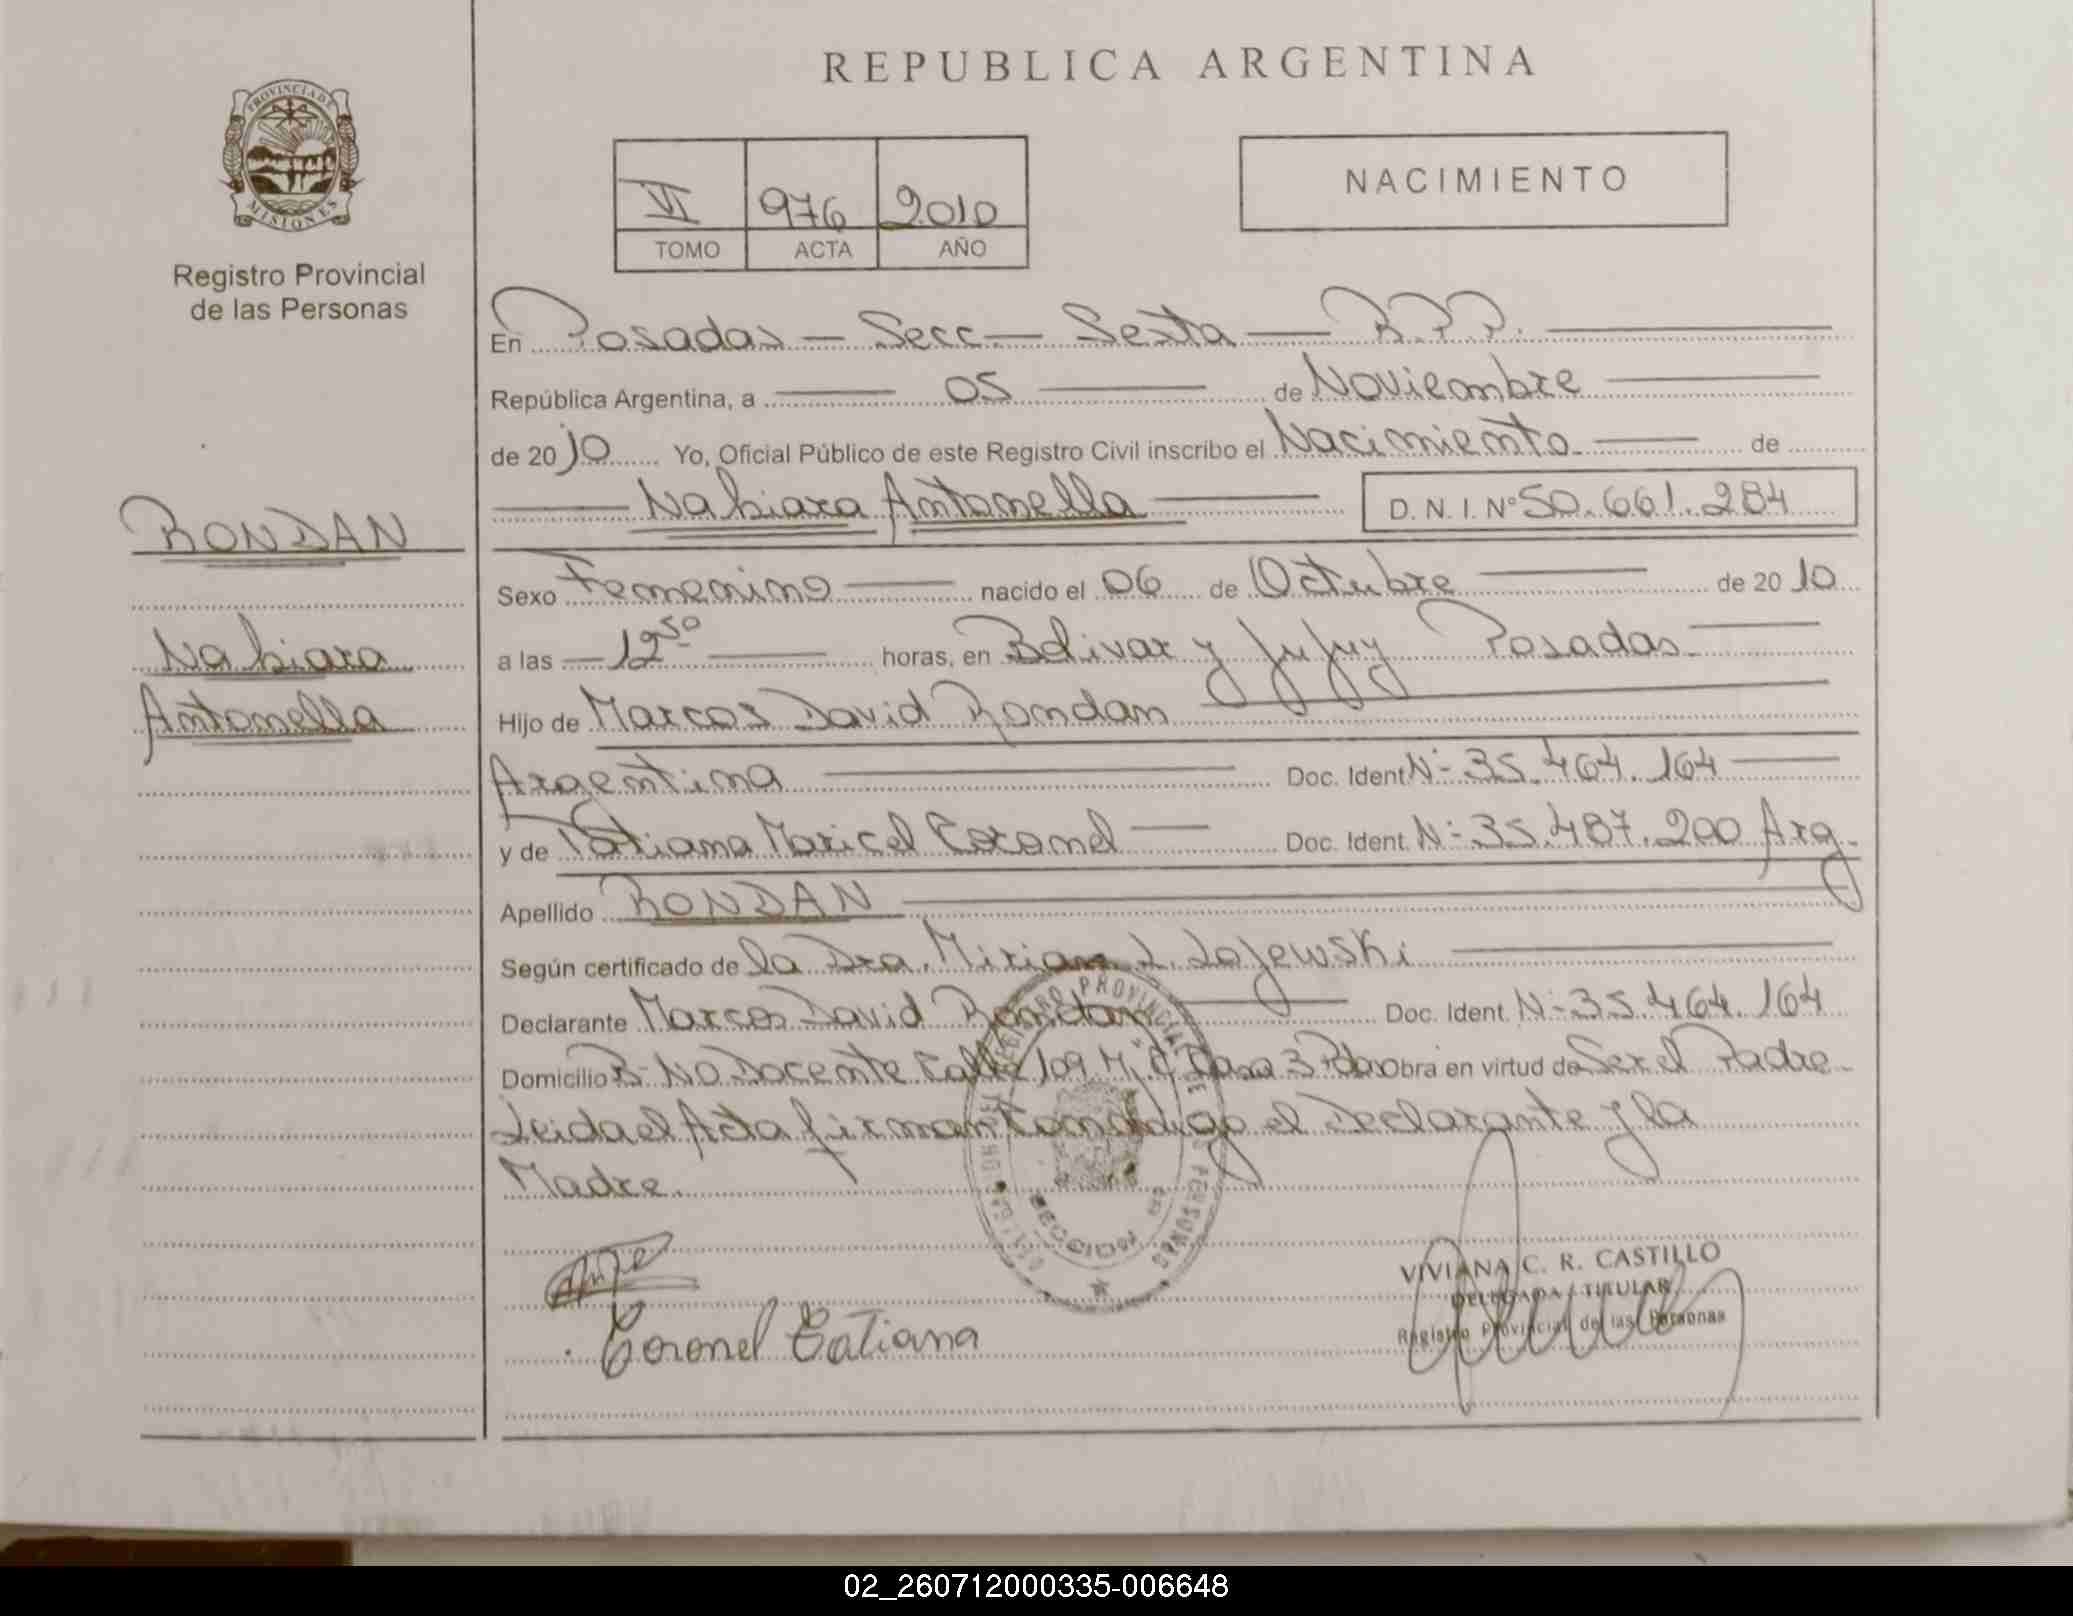 REPUBLICA ARGENTINA
PROVINCIA DE
MISIONES
Registro Provincial
de las Personas
VI 976 2010
TOMO ACTA AÑO
NACIMIENTO
En Posadas — Secc — Sexta — R.P.P.
República Argentina, a 05 de Noviembre
de 2010 Yo, Oficial Público de este Registro Civil inscribo el Nacimiento de
Nahiara Antonella D. N. I. Nº 50.661.284
RONDAN
Nahiara
Antonella
Sexo Femenino nacido el 06 de Octubre de 2010
a las 12 50 horas, en Bolivar y Jujuy Posadas
Hijo de Marcos David Rondan
Argentina Doc. Ident. Nº 35.464.164
y de Tatiana Maricel Coronel Doc. Ident. Nº 35.487.200 Arg.
Apellido RONDAN
Según certificado de la Dra. Miriam L. Lojewski
Declarante Marcos David Rondan Doc. Ident. Nº 35.464.164
Domicilio Bº Docente Calle 109 Casa 3 Obra en virtud de Ser el Padre
Leida el Acta firman conmigo el Declarante y la
Madre.
REGISTRO PROVINCIAL DE LAS PERSONAS
SECCION
Coronel Tatiana
VIVIANA C. R. CASTILLO
DELEGADA TITULAR
Registro Provincial de las Personas
02_260712000335-006648